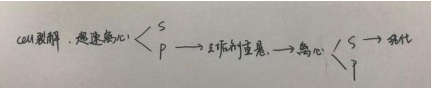 cell裂解, 超速离心 S
P → 去垢剂重悬, → 离心 S → 纯化
P